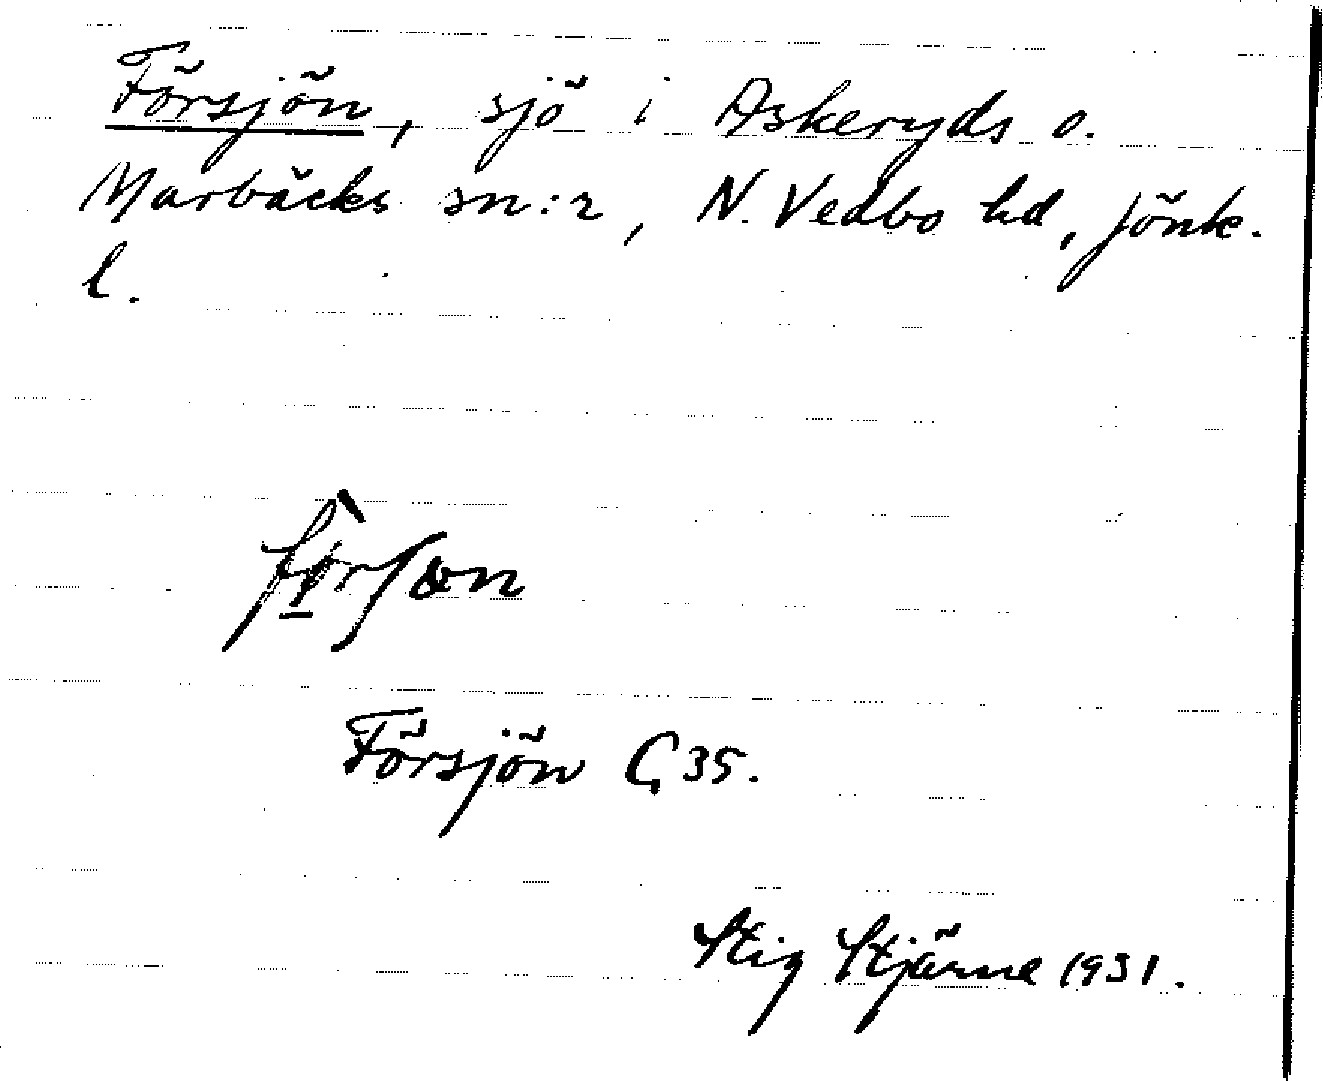 Försjön, sjö i Askeryds o.
Marbäcks sn:r, N. Vedbo hd, Jönk.
l.
Försjön G 35.
Stig Stjärne 1931.